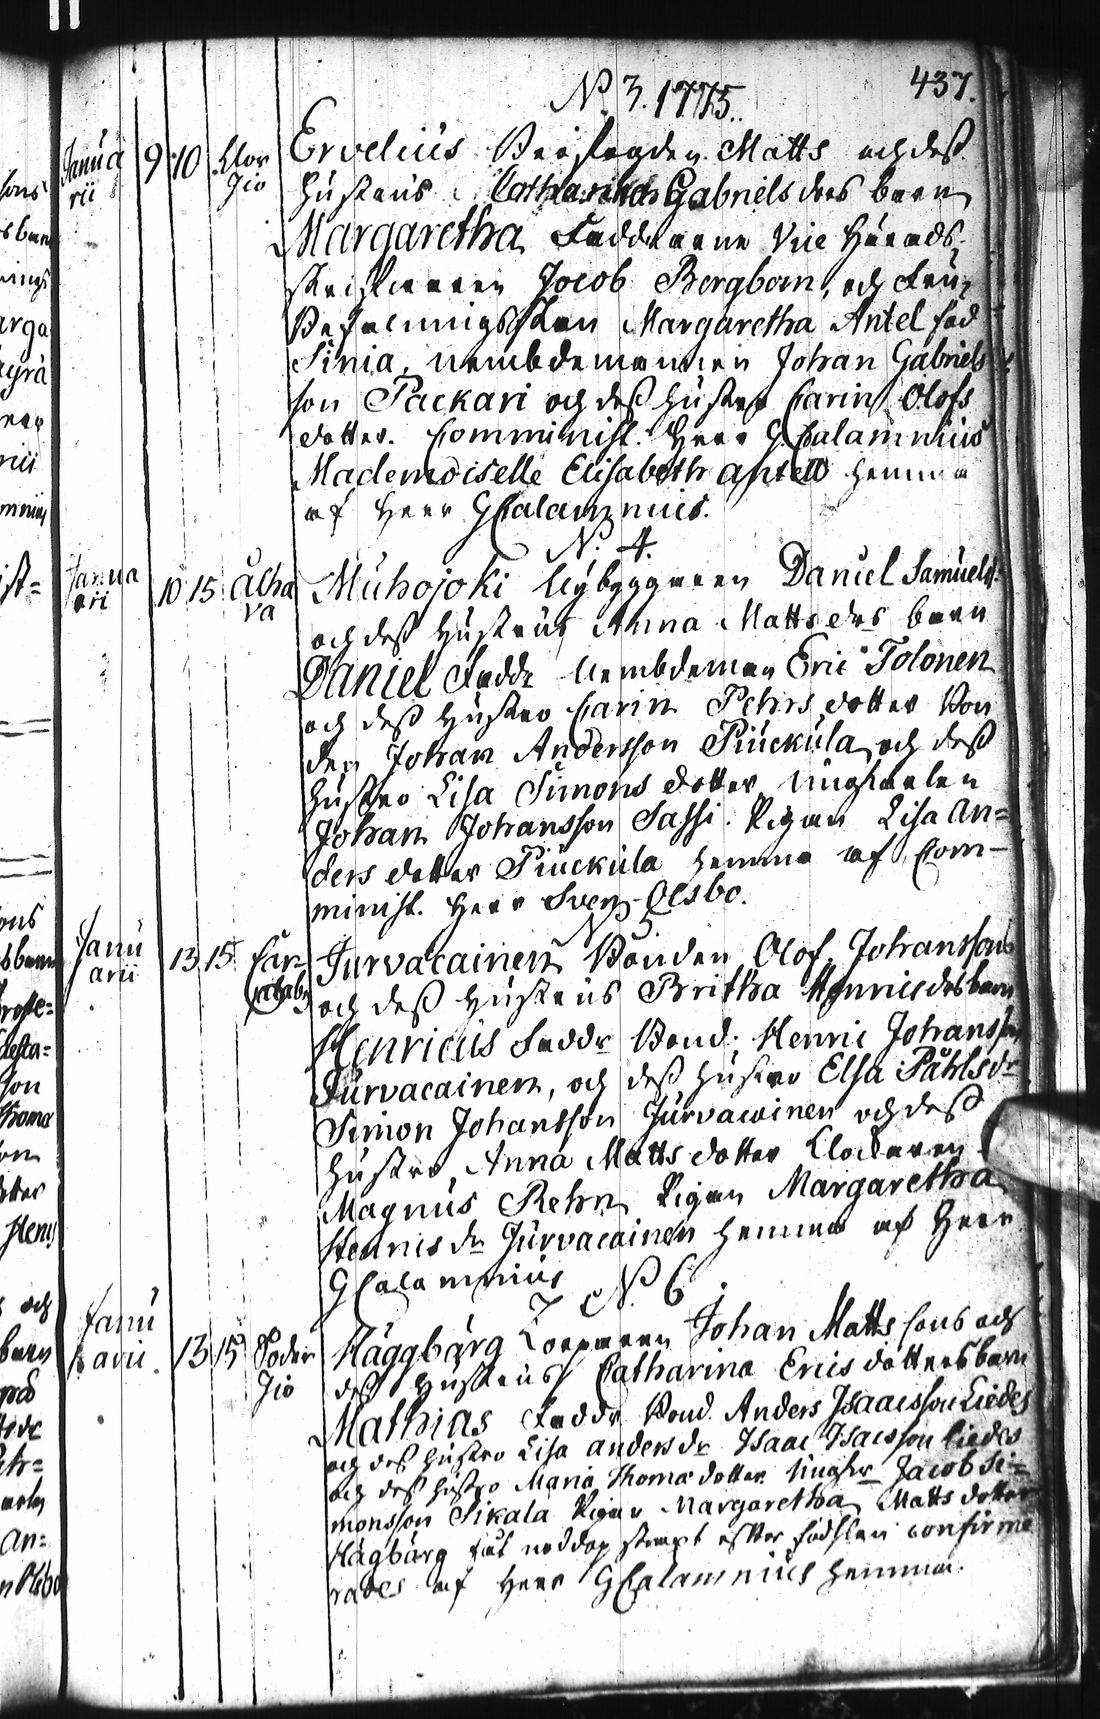 437.
N. 3. 1775.
Janua
rii
9 10 Clor
Jio
Ervelius Matts och dess
hustrus Catharina Gabriels drs barn
Margaretha Faddrarne Vice Härads
skrifvaren Jacob Bergbom, och Fru
Befalningsskan Margaretha Antel född
Sinia, nembdemannen Johan Gabriels
son Packari och dess hustro Carin Olofs
dotter. Comminist. Herr G Calamnius
Mademoiselle Elisabeth Antell hemma
af Herr G Calamnius.
N. 4.
Janua
rii
10 15 Alha
va
Muhojoki Nybyggaren Daniel Samuels
och dess hustrus Anna Matts drs barn
Daniel Faddr Nembdeman Eric Tolonen
och dess hustro Carin Pehrs dotter Bon
den Johan Andersson Piuckula och dess
hustro Lisa Simons dotter ungkarlen
Johan Johansson Sassi. Pigan Lisa An=
ders dotter Piuckula hemma af Com-
minist. Herr Sven Olsbo.
N 5.
Janu
arii
13 15 Car=
Jurvacainen Bonden Olof Johanssons
och dess hustrus Britha Henrics drs barn
Henricus Faddr Bond. Henric Johansson
Jurvacainen, och dess hustro Elsa Påhls dr
Simon Johansson Jurvacainen och dess
hustro Anna Matts dotter Clockaren
Magnus Rehn Pigan Margaretha
Henrics dr Jurvacainen hemma af Herr
G Calamnius N. 6
Janu
arii
13 15 Söder
Jio
Häggbärg Torparen Johan Matts sons och
dess hustrus Catharina Erics dotters barn
Mathias Faddr Bond. Anders Isaacsson Liedes
och dess hustro Lisa anders dr Isaac Isacsson Liedes
och dess hustro Maria Thomæ dotter Ungkr Jacob Si=
monsson Sikala Pigan Margaretha Matts dotter
Hägbärg fåt nöddop strax efter födslen confirme
rades af Herr G Calamnius hemma.